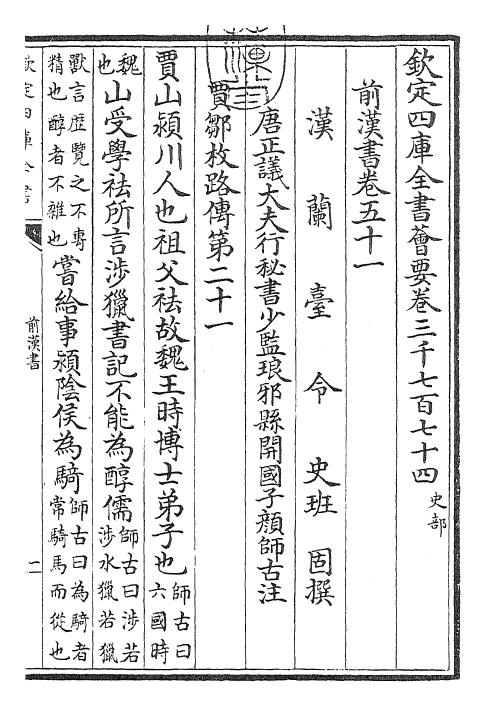 欽定四庫全書薈要卷三千七百七十四 史部
前漢書卷五十一
漢蘭臺令史班固撰
唐正議大夫行秘書少監琅邪縣開國子顔師古注
賈鄒枚路傳第二十一
賈山潁川人也祖父袪故魏王時博士弟子也師古曰六國時
魏也山受學袪所言涉獵書記不能為醇儒師古曰涉若涉水獵若獵
獸言歴覽之不專精也醇者不雜也嘗給事潁陰侯為騎師古曰為騎者常騎馬而從也
前漢書